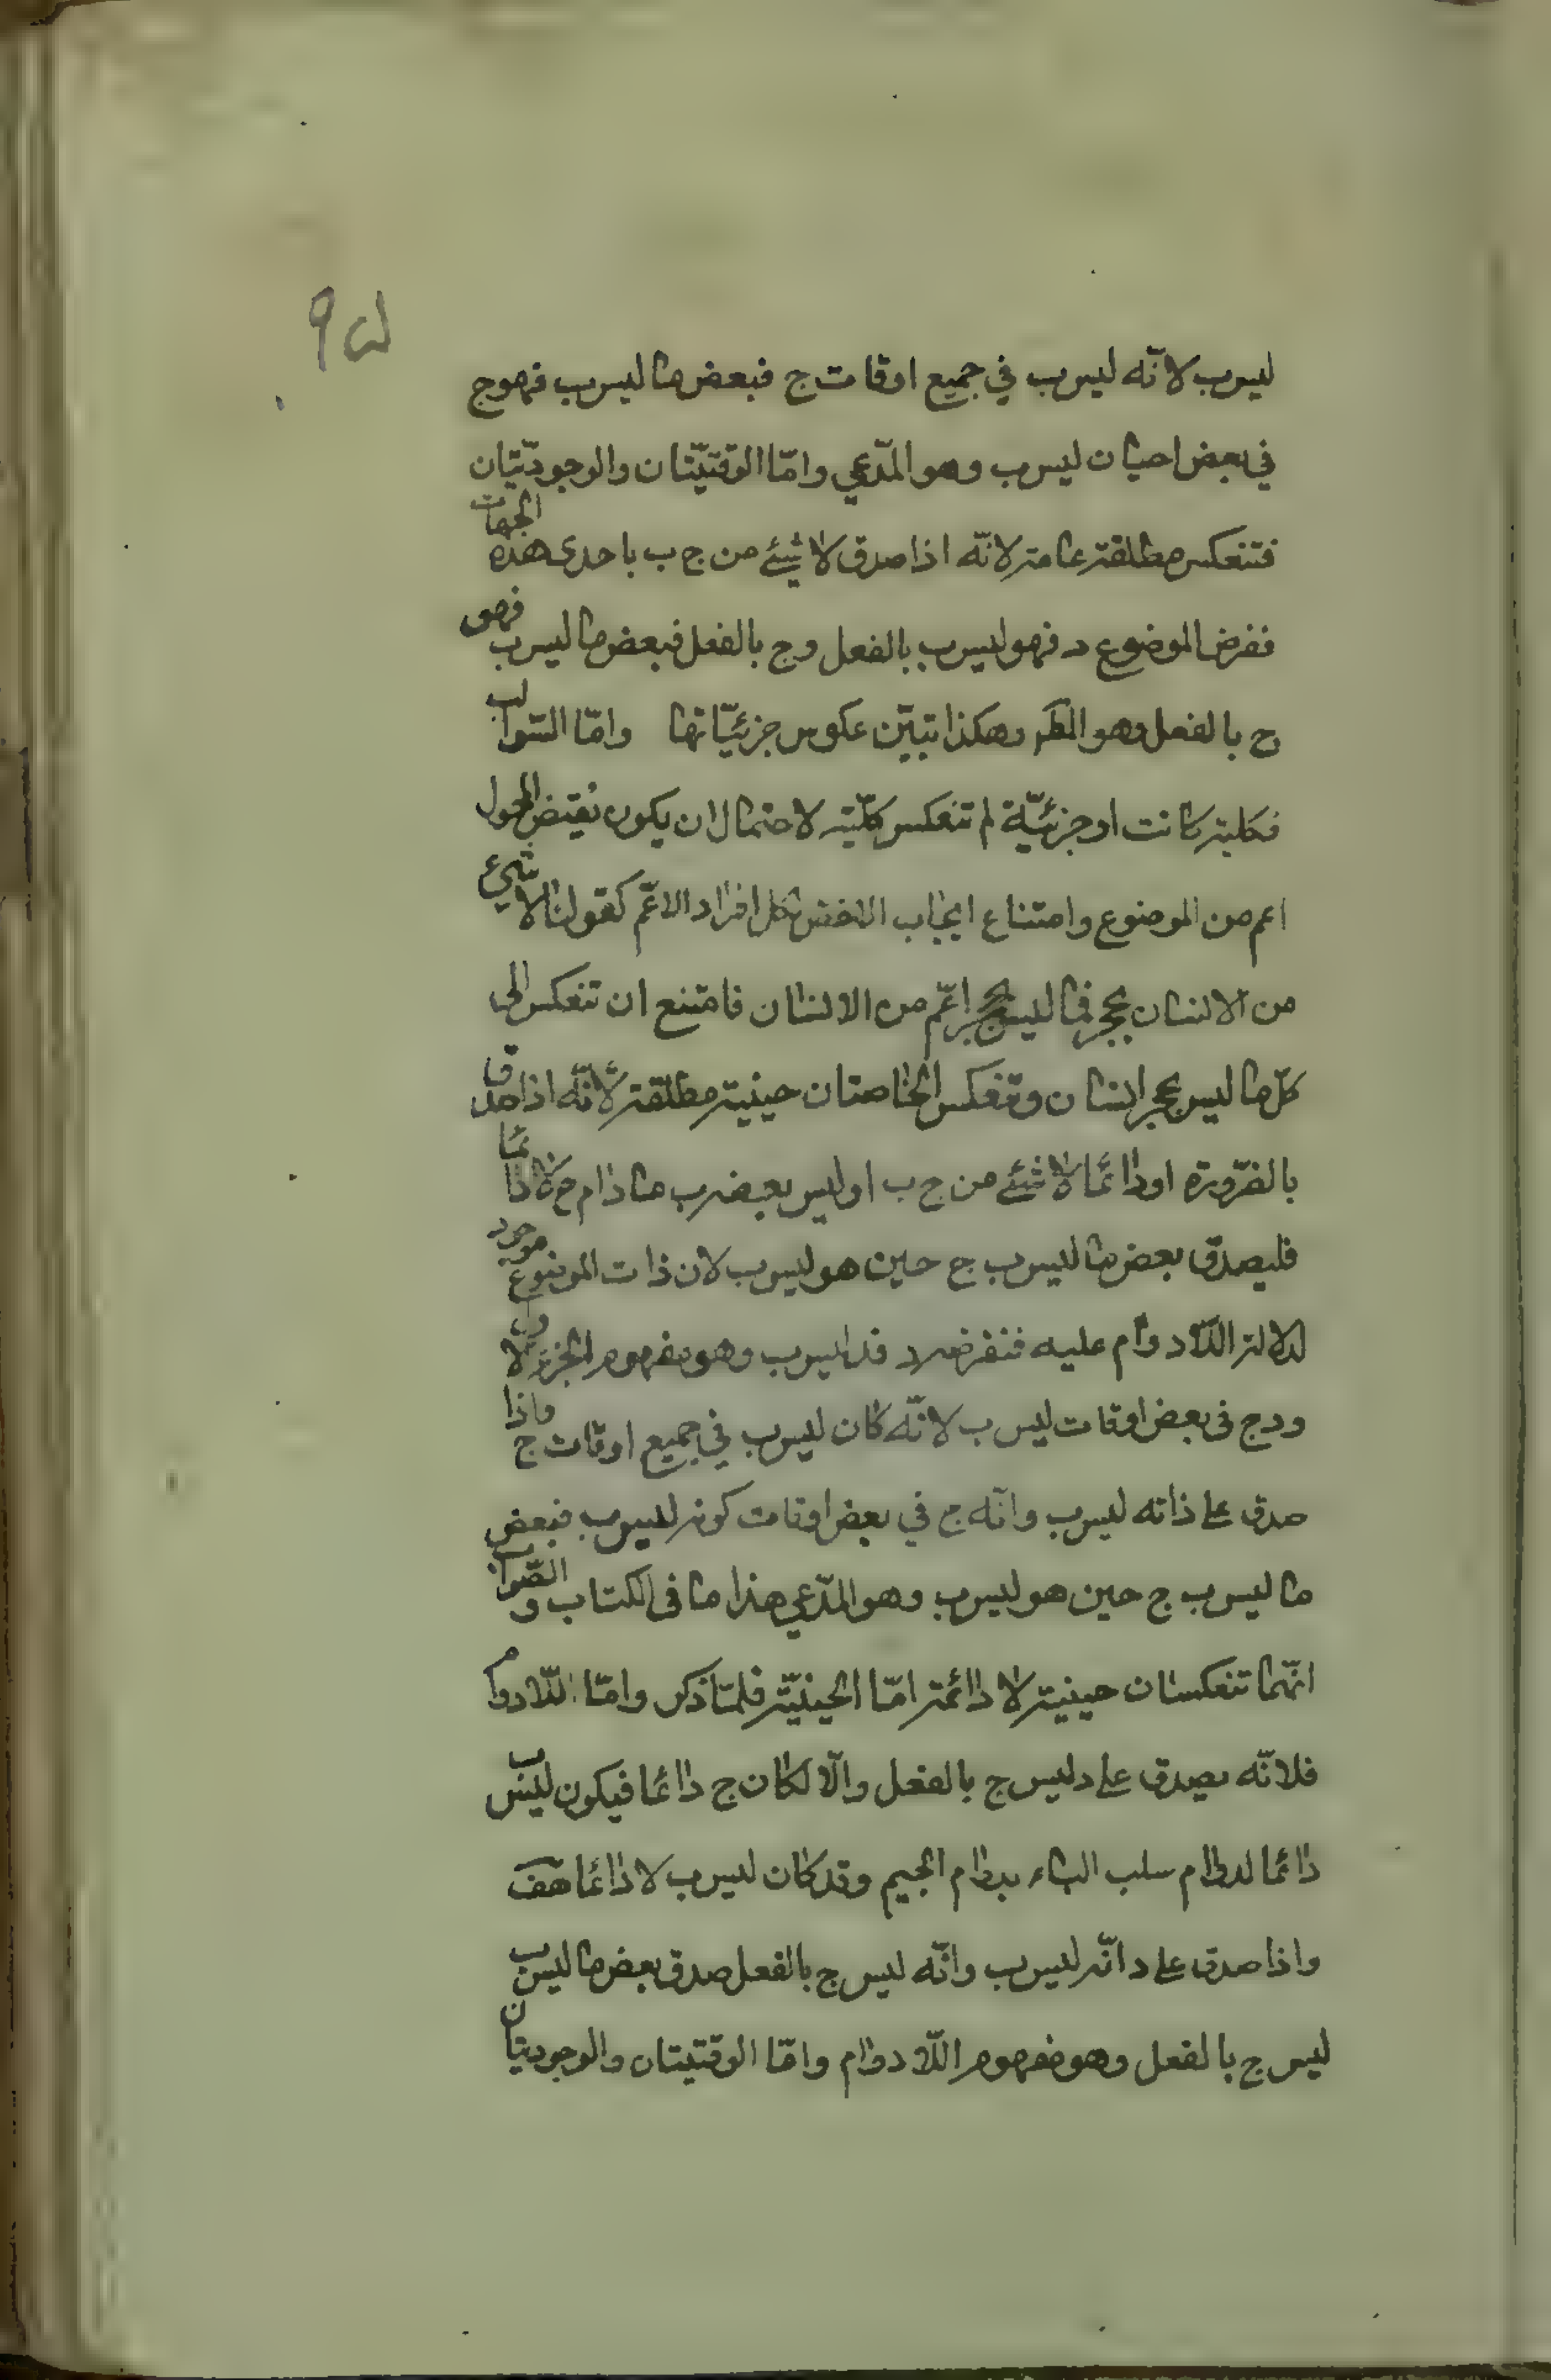 ليس ب لانّه ليس ب في جميع اوقات ج فبعض ما ليس ب فهو ج
في بعض احيان ليس ب وهو المدّعي وامّا الوقتيّتان والوجوديّتان
فتنعكس مطلقة عامة لانّه اذا صدق لا شيئ من ج ب باحدى هذه الجهات
نفرض الموضوع د فهو ليس ب بالفعل وج بالفعل فبعض ما ليس ب فهو
ج بالفعل وهو المط وهكذا تبيّن عكوس جزئيّاتها وامّا السّوالب
فكلية كانت او جزئيّة لم تنعكس كلّيّة لاحتمال ان يكون نقيض المحمول
اعم من الموضوع وامتناع ايجاب الاخص لكل افراد الاعّم كقولنا لا شيئ
من الانسان بحجر فما ليس بحجر اعّم من الانسان فامتنع ان تنعكس الى
كلّ ما ليس بحجر انسان وتنعكس الخاصتان حينية مطلقة لانّه اذا صدق
بالضّرورة او دائما لا شئ من ج ب او ليس بعضه ب ما دام ج لا دائما
فليصدق بعض ما ليس ب ج حين هو ليس ب لان ذات الموضوع موجود
لدلالة اللّا دوام عليه فنفرضه د فد ليس ب وهو مفهوم الجزء الاول
ود ج في بعض اوقات ليس ب لانّه كان ليس ب في جميع اوقات ج واذا
صدق على ذاته ليس ب وانّه ج في بعض اوقات كونه ليس ب فبعض
ما ليس ب ج حين هو ليس ب وهو المدّعي هذا ما في الكتاب والصّواب
انّهما تنعكسان حينية لا دائمة امّا الحينيّة فلما ذكر وامّا اللّا دوام
فلانّه يصدق على د ليس ج بالفعل والّا لكان ج دائما فيكون ليس ب
دائما لدوام سلب الباء بدوام الجيم وقد كان ليس ب لا دائما هف
واذا صدق على د انّه ليس ب وانّه ليس ج بالفعل صدق بعض ما ليس ب
ليس ج بالفعل وهو مفهوم اللّا دوام وامّا الوقتيتان والوجوديتان